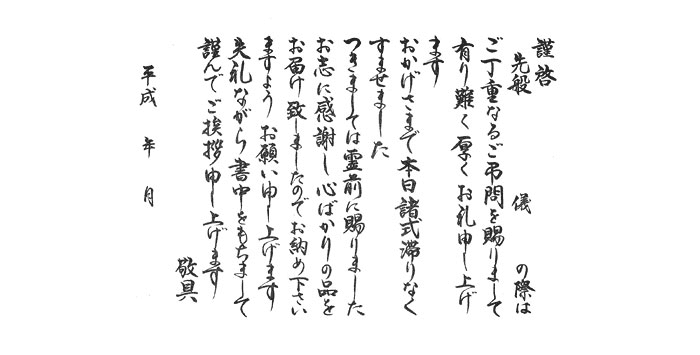 謹啓
先般 儀 の際は
ご丁重なるご弔問を賜りまして
有り難く厚くお礼申し上げ
ます
おかげさまで本日諸式滞りなく
すませました
つきましては霊前に賜りました
お志に感謝し心ばかりの品を
お届け致しましたのでお納め下さい
ますよう お願い申し上げます
失礼ながら書中をもちまして
謹んでご挨拶申し上げます
敬具
平成 年 月